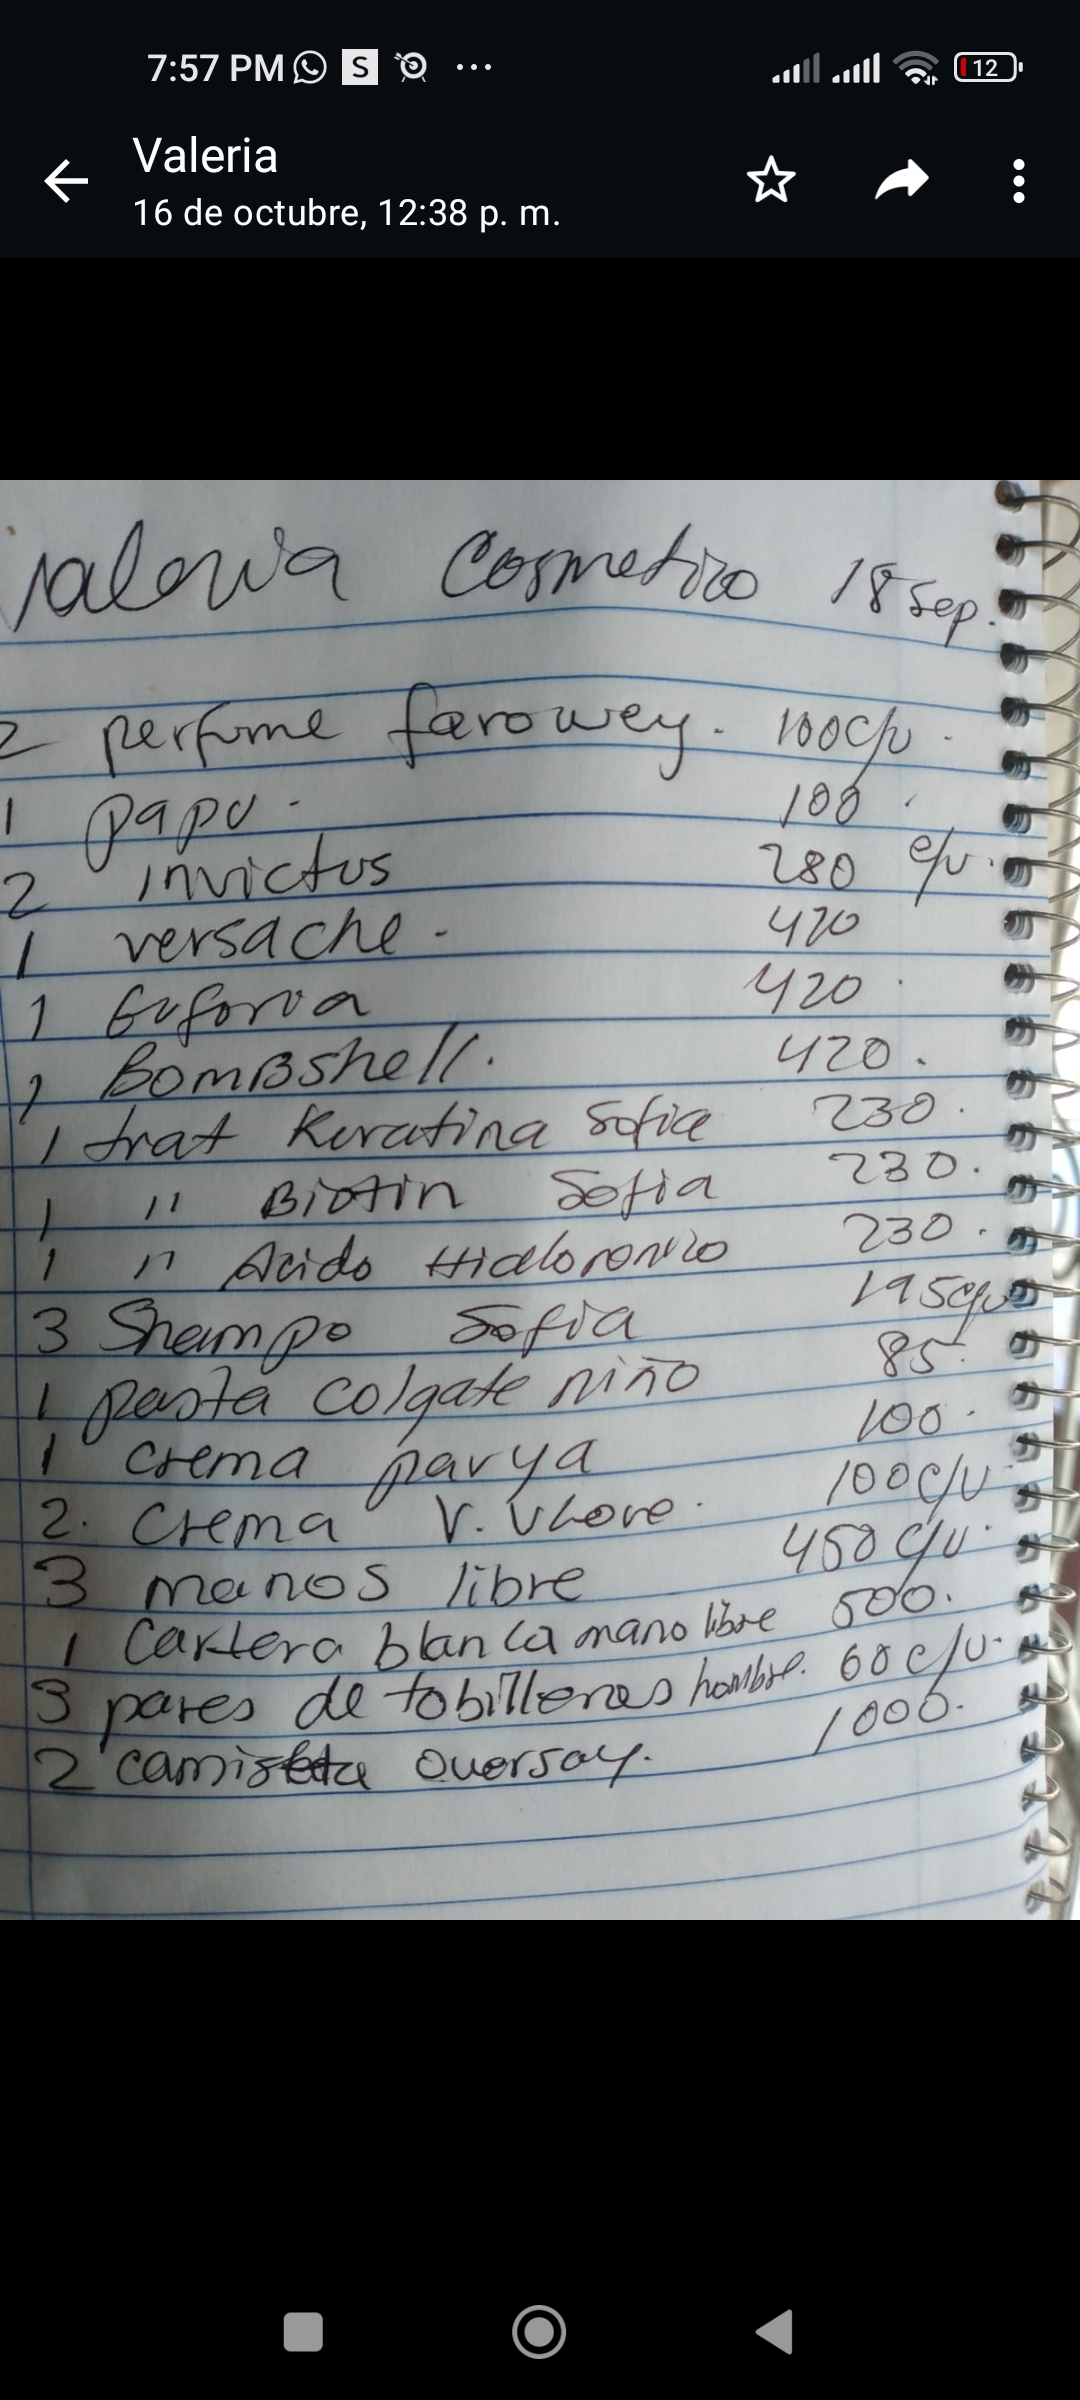 7:57 PM S ... 12
Valeria
16 de octubre, 12:38 p. m.
Valeria Cosmetico 18 Sep.
2 perfume farowey. 100 c/u.
1 papu. 100
2 invictus 280 c/u.
1 versache. 420
1 Euforia 420
1 BomBshell. 420.
1 trat Keratina Sofia 230.
1 " Biotin Sofia 230.
1 " Acido Hialoronico 230.
3 Shampo Sofia 195 c/u
1 pasta colgate niño 85.
1 crema parya 100.
2. crema V. 100 c/u.
3 manos libre 450 c/u.
1 Cartera blanca mano libre 500.
3 pares de tobilleras hombre. 60 c/u.
2 camiseta oversay. 1000.